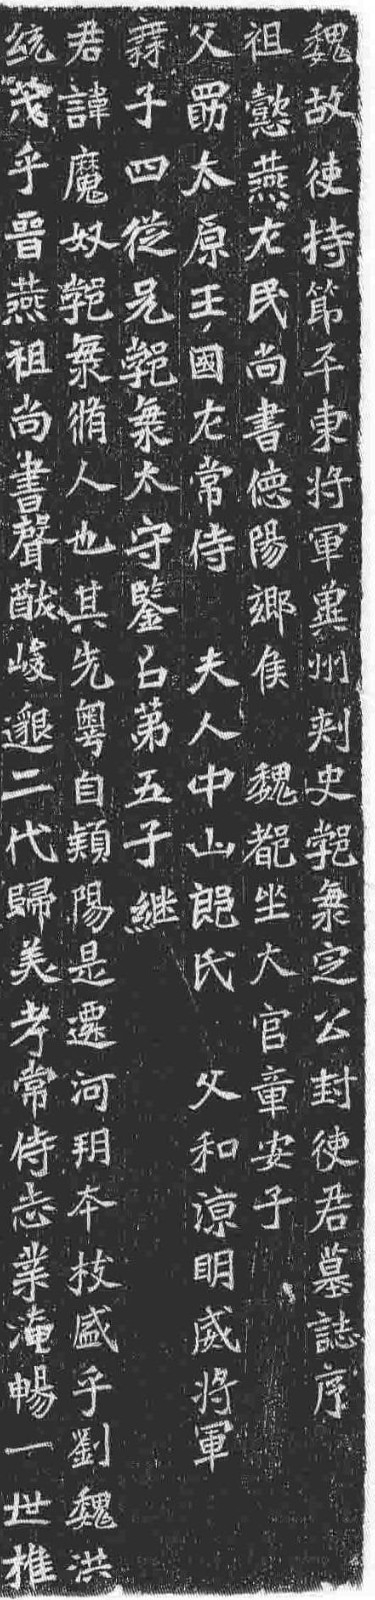 魏故使持節平東將軍冀州刾史勃海定公封使君墓誌序
祖懿燕左民尚書德陽鄉侯 魏都坐大官章安子
父勗太原王國左常侍 夫人中山郎氏 父和涼明威將軍
無子四從兄勃海太守鑒以第五子繼
君諱魔奴勃海脩人也其先粵自潁陽是遷河朔本枝盛乎劉魏洪
統茂乎晉燕祖尚書聲猷峻邈二代歸美考常侍志業淹暢一世推